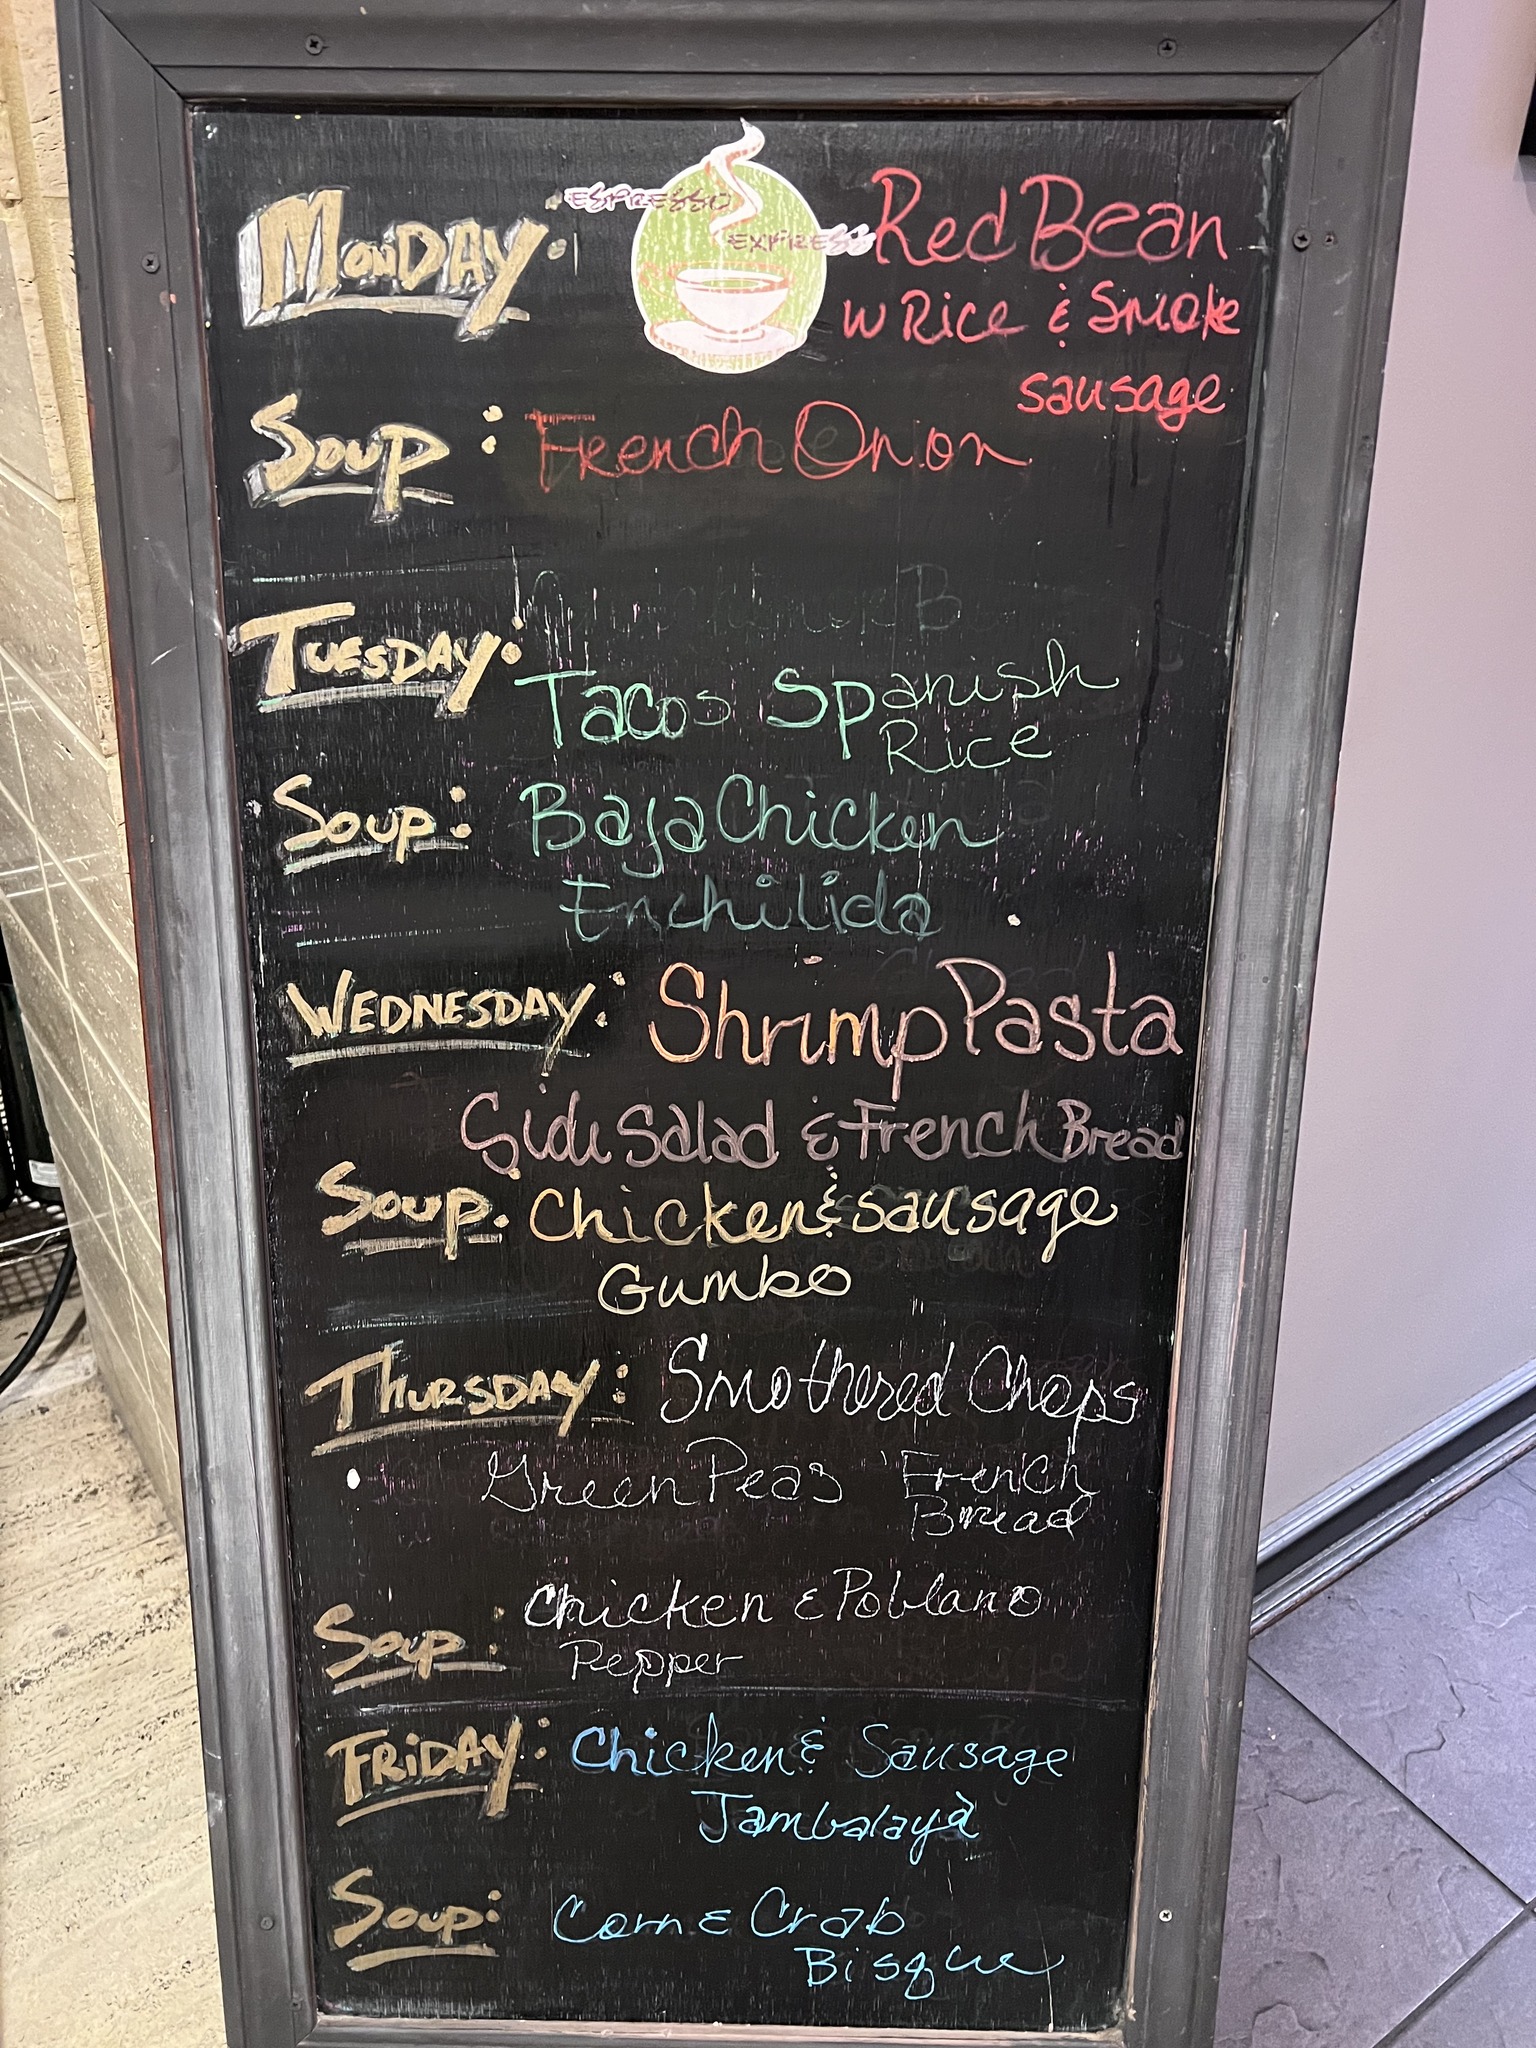 MONDAY:
ESPRESSO
EXPRESS
Red Bean
w Rice & Smoke
sausage
SOUP:
French Onion
TUESDAY:
Tacos Spanish
Rice
SOUP:
Baja Chicken
Enchilida
WEDNESDAY: Shrimp Pasta
Side Salad & French Bread
SOUP: Chicken & sausage
Gumbo
THURSDAY: Smothered Chops
Green Peas French
Bread
SOUP: Chicken & Poblano
Pepper
FRIDAY: Chicken & Sausage
Jambalaya
SOUP: Corn & Crab
Bisque